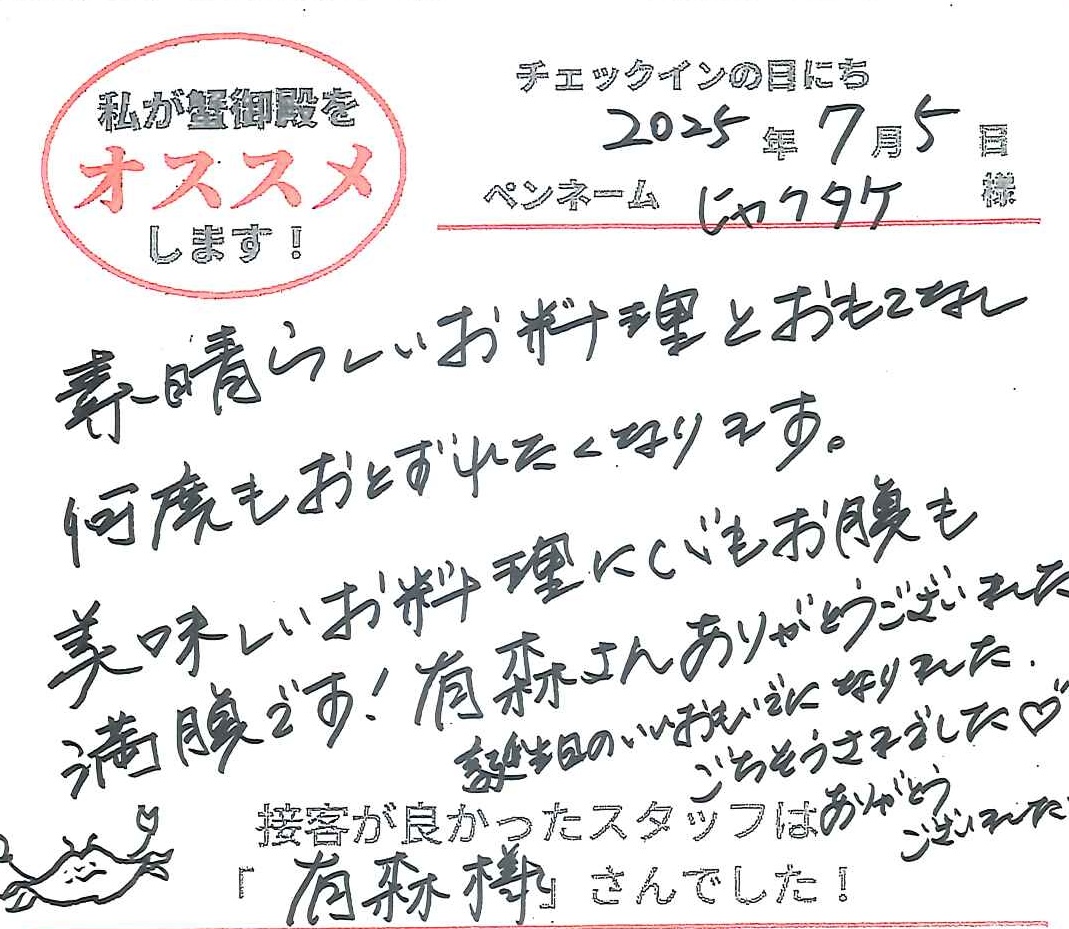 私が蟹御殿を
オススメ
します！
チェックインの日にち
2025年7月5日
ペンネーム にゃクタケ 様
素晴らしいお料理とおもてなし
何度もおとずれたくなります。
美味しいお料理に心もお腹も
満腹です！有森さんありがとうございました
誕生日のいいおもいでになりました.
ごちそうさまでした♡
ありがとう
ございました
接客が良かったスタッフは
「有森様」さんでした！